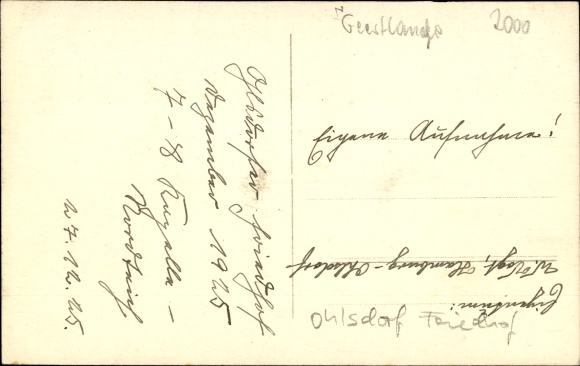 Geestlande
2000
Ohlsdorfer Friedhof
Dezember 1925
7 - 8 Kapelle -
Nordteich
27.12.25.
Eigene Aufnahme!
Eigentum:
W. Vogt, Hamburg-Ohlsdorf
Ohlsdorf Friedhof